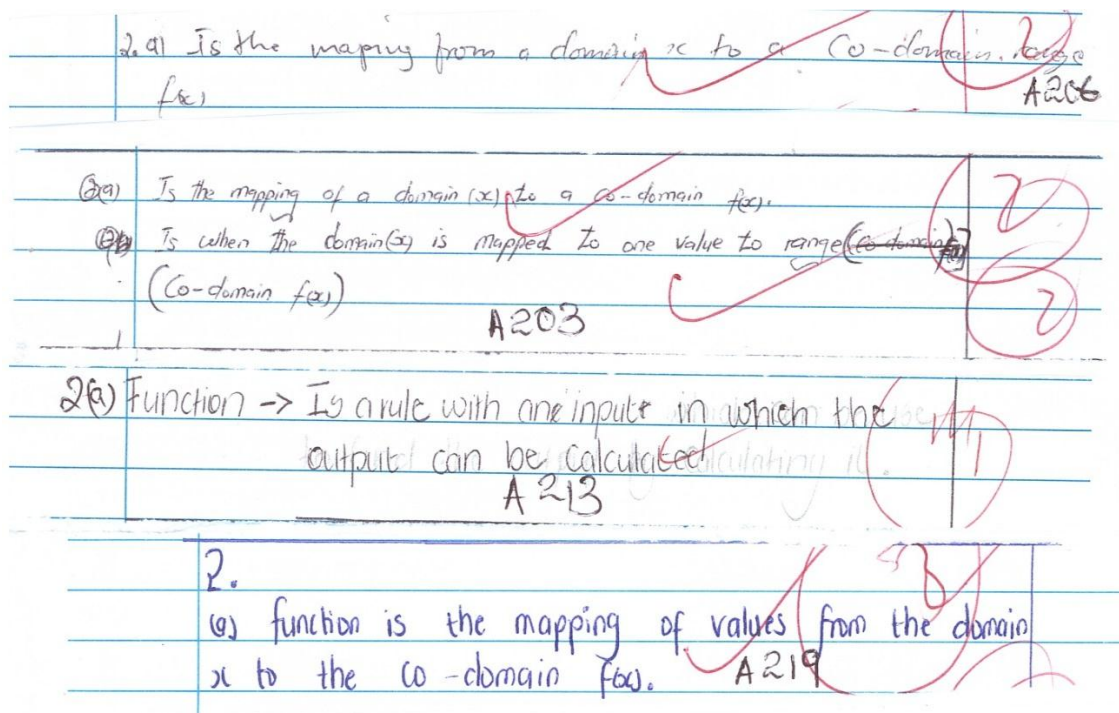 2. a) Is the maping from a domain x to a Co-domain. range
f(x)
A206
Q2a) Is the mapping of a domain (x) to a co-domain f(x).
Is when the domain (x) is mapped to one value to range
(Co-domain f(x))
A203
2(a) Function → Is a rule with one input in which the
output can be calculated
A213
2.
(a) function is the mapping of values from the domain
x to the co-domain f(x).
A219